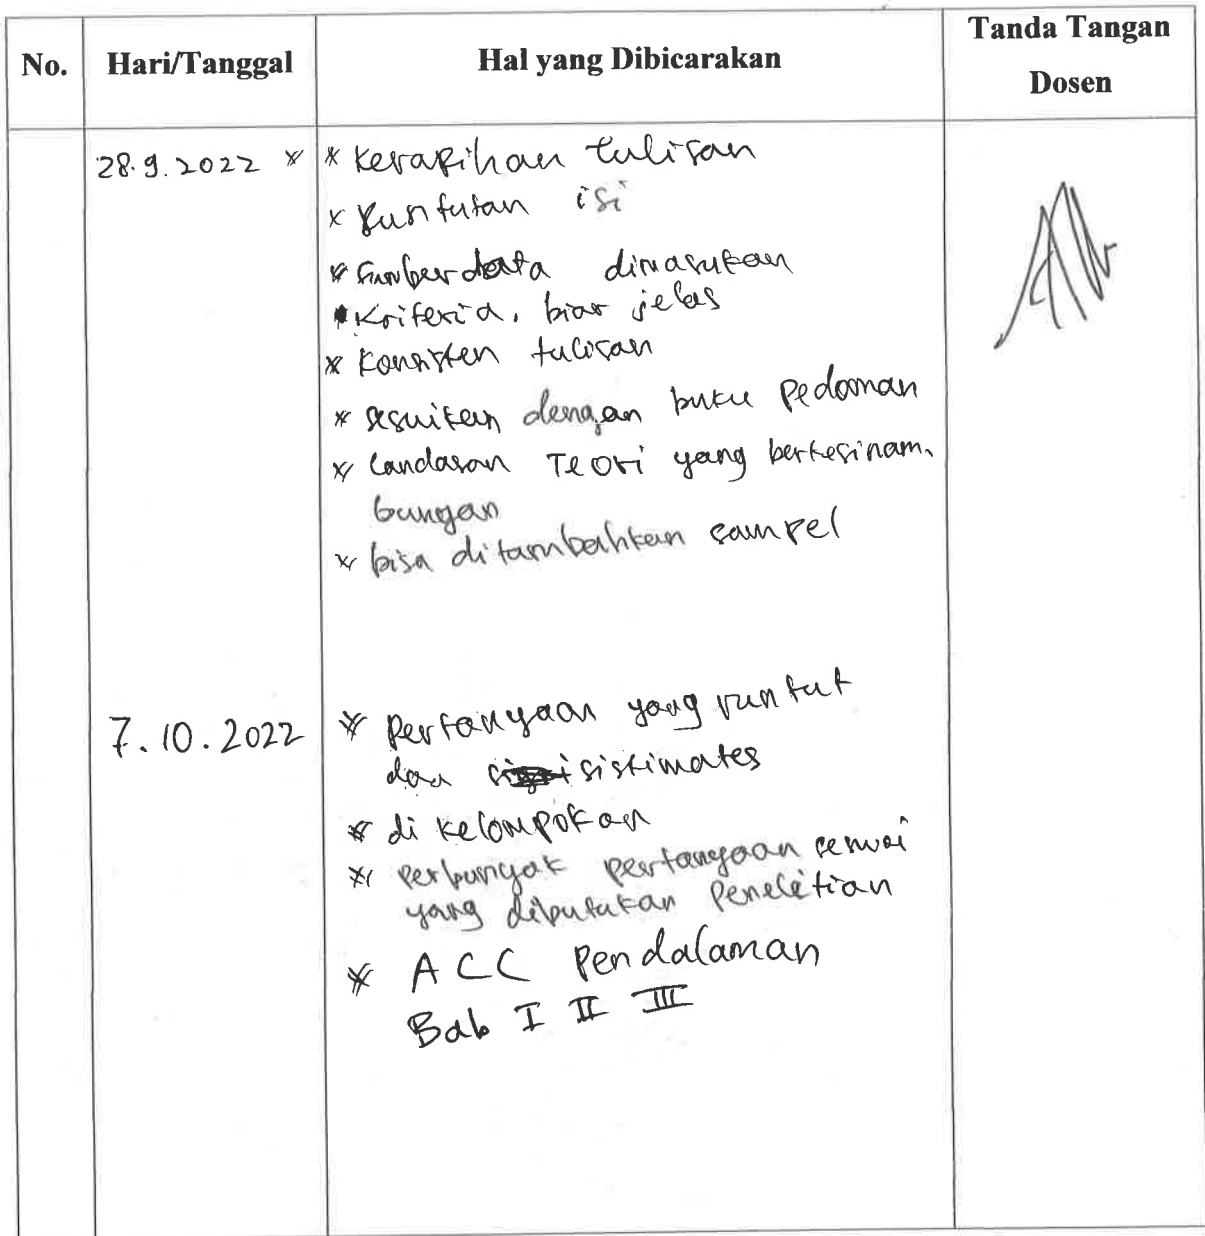 No. Hari/Tanggal Hal yang Dibicarakan Tanda Tangan Dosen
28.9.2022 * * Kerapihan tulisan
* Runtutan isi
* Sumber data dimasukan
* Kriteria, biar jelas
* Konsisten tulisan
* sesuikan dengan buku Pedoman
* Landasan Teori yang berkesinam-
bungan
* bisa ditambahkan sampel
7.10.2022 * Pertanyaan yang runtut
dan sistimates
* di kelompokan
* Perbanyak pertanyaan sesuai
yang dibutukan Penelitian
* ACC Pendalaman
Bab I II III